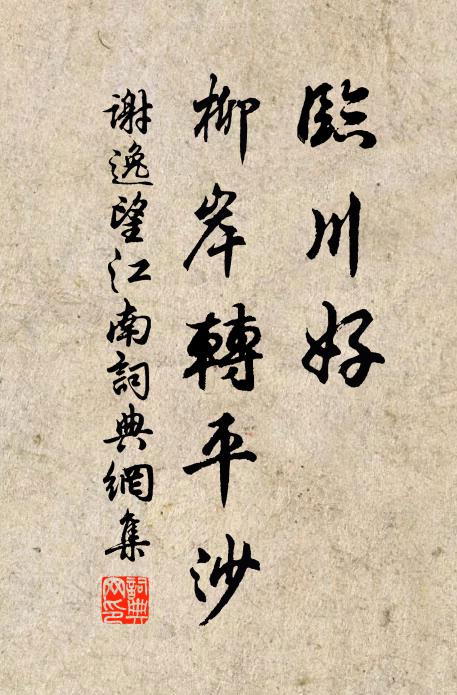 臨川好
柳岸轉平沙
謝逸望江南詞典網集
詞典網印